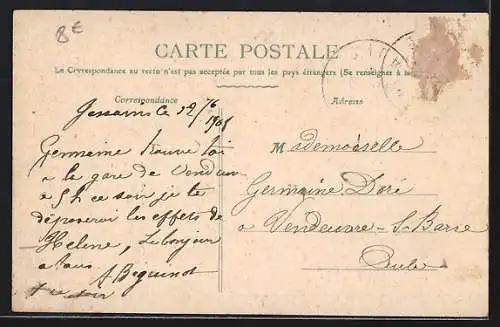 8€
CARTE POSTALE
La Correspondance au recto n'est pas acceptée par tous les pays étrangers (Se renseignez à la
Correspondance
Adresse
Jessains le
Germaine trouve toi
a la gare de Vendeuvre
a 5 h ce soir je te
déposerai les effets de
Helene, Le bonjour
a tous
A Beguinot
Mademoiselle
Germaine Doré
a Vendeuvre-S-Barse
Aube